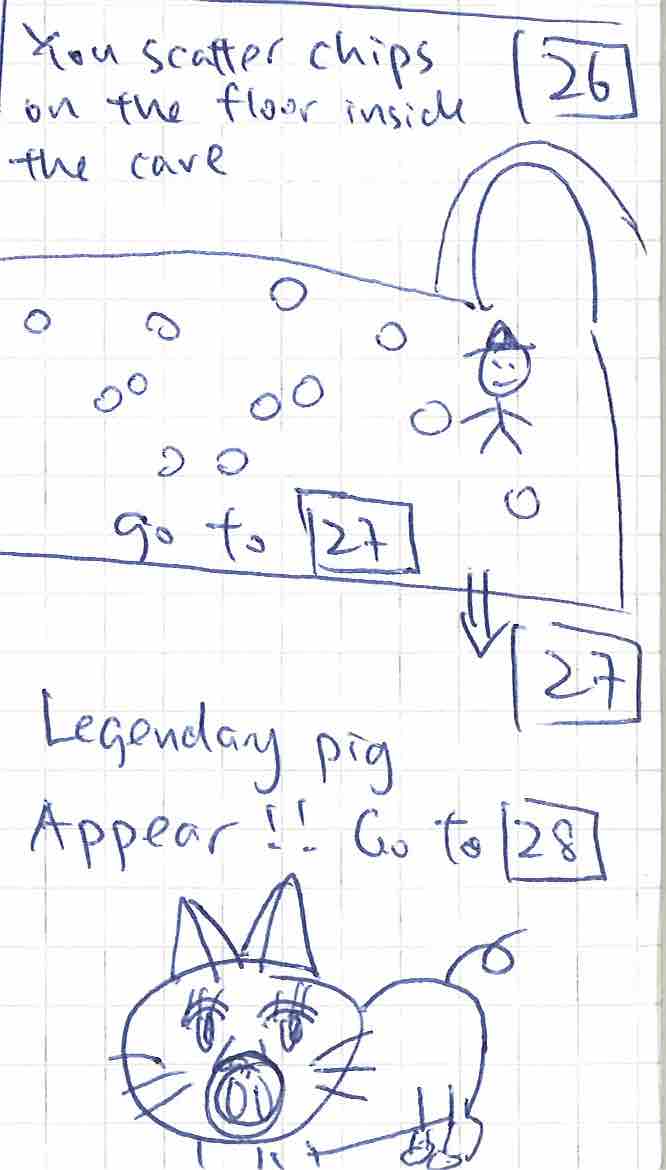 You scatter chips 26
on the floor inside
the cave
go to 27
27
Legendary pig
Appear!! Go to 28